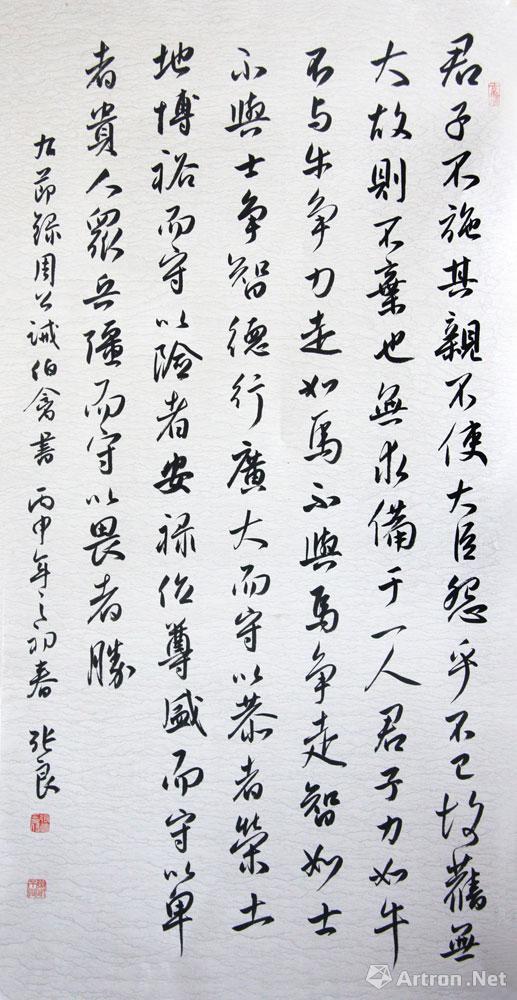 君子不施其親不使大臣怨乎不已故舊無
大故則不棄也無求備于一人君子力如牛
不与牛争力走如馬不與馬争走智如士
不與士争智德行廣大而守以恭者榮土
地博裕而守以險者安禄位尊盛而守以卑
者貴人眾兵彊而守以畏者勝
右節錄周公誡伯禽書 丙申年之初春 张良
Artron.Net